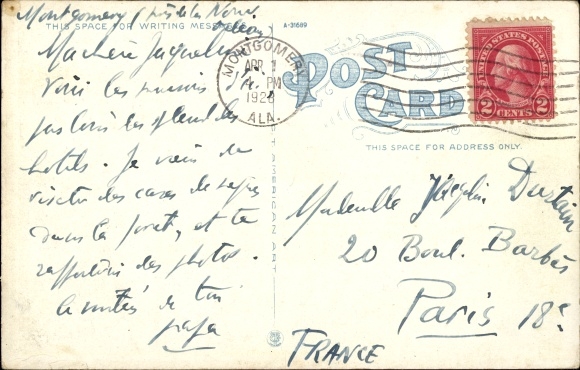 Montgomery (près de la Nouv.
THIS SPACE FOR WRITING MESSAGE
Ma chère Jacqueline
Voici les
pas loin les splendides
hotels. Je viens de
visiter des cases de
dans la forêt, et te
rapporterai des photos.
de ton
papa
A-31689
MONTGOMERY
APR 1
PM
1928
ALA.
POST
CARD
UNITED STATES POSTAGE
2 CENTS 2
THIS SPACE FOR ADDRESS ONLY.
Mademoiselle Jacqueline Durtain
20 Boul. Barbès
Paris 18e
FRANCE